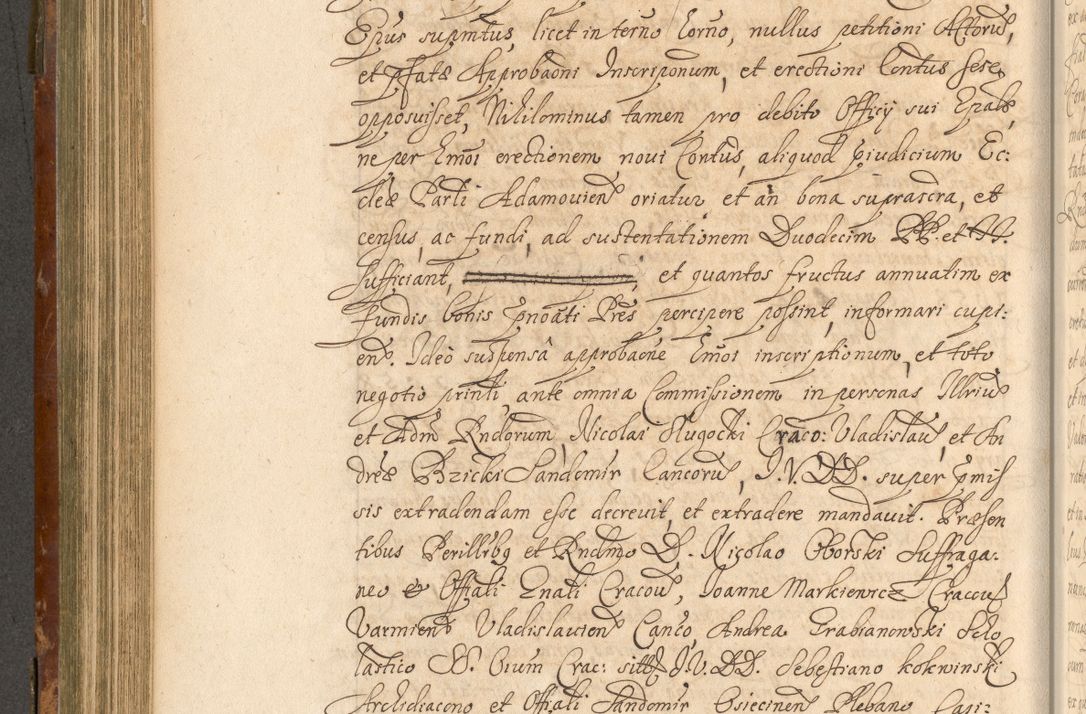 Eṗus supmtus, licet in termo Corno, nullus petitioni Actorū,
et pfatæ Approbaōni Inscriponum, et erectioni Contus sese
opposuisset, Nihilominus tamen pro debito Officij sui Epalis,
ne per Emoi erectionem noui Contus, aliquod pjudicium Ec:
cleæ Parti Adamouien oriatur et an bona suprascra, et
census, ac fundi, ad sustentationem Duodecim PP. et FF.
sufficiant, et quantos fructus annuatim ex
fundis bonis pnoāti Pres percipere possint, informari cupi:
ens. Ideò suspensâ approbaōne Emoi inscriptionum, et toto
negotio printi, ante omnia Commissionem in personas Illriū
et Adm Rndorum, Nicolai Slugocki Craco: Vladislau, et An
dreæ Brzicki Sandomir Cancorū, J.V.DD. super pmis
sis extradendam esse decreuit, et extradere mandauit. Præsen
tibus Perillrbg et Rndmo D. Nicolao Oborski Suffraga:
neo et Offiali Gnali Cracou, Joanne Markiewicz Cracou
Varmien Vladislauien Canco, Andrea Grabianowski Scho
lastico SS. Oium Crac: J.V.DD. Sebestiano kokwinski
Archidiacono et Offiali Sandomir Osiecinen Plebano